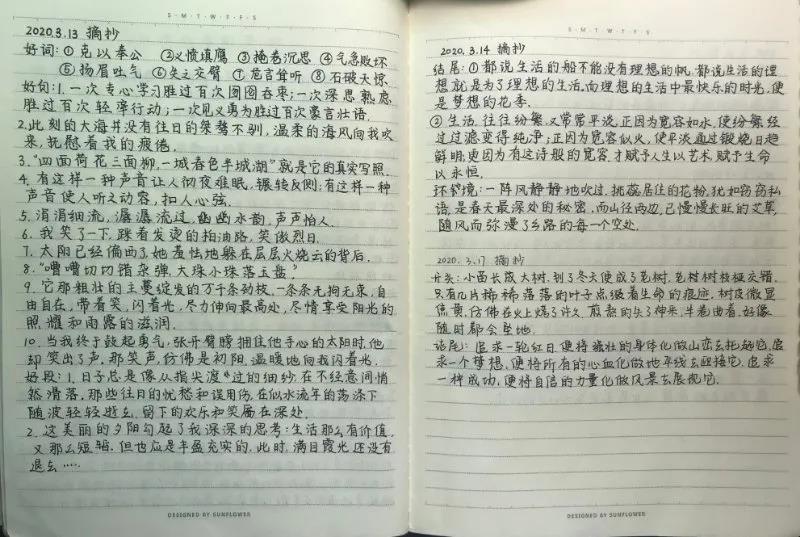 S·M·T·W·T·F·S
2020.3.13 摘抄
好词:①克以奉公 ②义愤填鹰 ③掩卷沉思 ④气急败坏
⑤扬眉吐气 ⑥失之交臂 ⑦危言耸听 ⑧石破天惊
好句:1.一次专心学习胜过百次囫囵吞枣;一次深思熟虑
胜过百次轻率行动;一次见义勇为胜过百次豪言壮语.
2.此刻的大海并没有往日的桀骜不驯,温柔的海风向我吹
来,抚慰着我的疲倦.
3."四面荷花三面柳,一城春色半城湖"就是它的真实写照.
4.有这样一种声音让人彻夜难眠,辗转反侧;有这样一种
声音使人听之动容,扣人心弦.
5.涓涓细流,潺潺流过,幽幽水韵,声声怡人.
6.我笑了一下,踩着发烫的柏油路,笑傲烈日.
7.太阳已经偏西了,她羞怯地躲在层层火烧云的背后.
8."嘈嘈切切错杂弹,大珠小珠落玉盘."
9.它那粗壮的主蔓绽发的万千条劲枝,一条条无拘无束,自
由自在,带着笑,闪着光,尽力伸向最高处,尽情享受阳光的
照耀和雨露的滋润.
10.当我终于鼓起勇气,张开臂膀拥住他手心的太阳时,他
却笑出了声,那笑声,仿佛是初阳,温暖地向我闪着光.
好段:1.日子总是像从指尖渡过的细纱,在不经意间悄
然滑落,那些往日的忧愁和误用伤,在似水流年的荡涤下
随波轻轻逝去,留下的欢乐和笑靥在深处.
2.这美丽的夕阳勾起了我深深的思考:生活那么有价值,
又那么短暂.但也应是丰盈充实的.此时,满目霞光还没有
退去……
DESIGNED BY SUNFLOWER
S·M·T·W·T·F·S
2020.3.14 摘抄
结尾:①都说生活的船不能没有理想的帆.都说生活的理
想就是为了理想的生活.而理想的生活中最快乐的时光,便
是梦想的花季.
②生活,往往纷繁,又常常平淡.正因为宽容如水,使纷繁经
过过滤变得纯净;正因为宽容似火,使平淡通过锻烧日趋
鲜明;更因为有这诗般的宽容,才赋予人生以艺术,赋予生命
以永恒.
环境:一阵风静静地吹过,挑蕊居住的花粉,犹如窃窃私
语,是春天最深处的秘密.而山径两边,已慢慢长旺的艾草,
随风而弥漫了乡路的每一个空处.
2020.3.17 摘抄
开头:小苗长成大树,到了冬天便成了老树.老树树枝桠交错,
只有几片稀稀落落的叶子点缀着生命的痕迹.树皮微显
焦黄,仿佛在火上烤了许久,煎熬的失了神采,半卷曲着,好像
随时都会坠地.
结尾:追求一轮红日,便将雄壮的身体化做山峦去托起它.追
求一个梦想,便将所有的心血化做地平线去迎接它.追求
一种成功,便将自信的力量化做风景去展视它.
DESIGNED BY SUNFLOWER